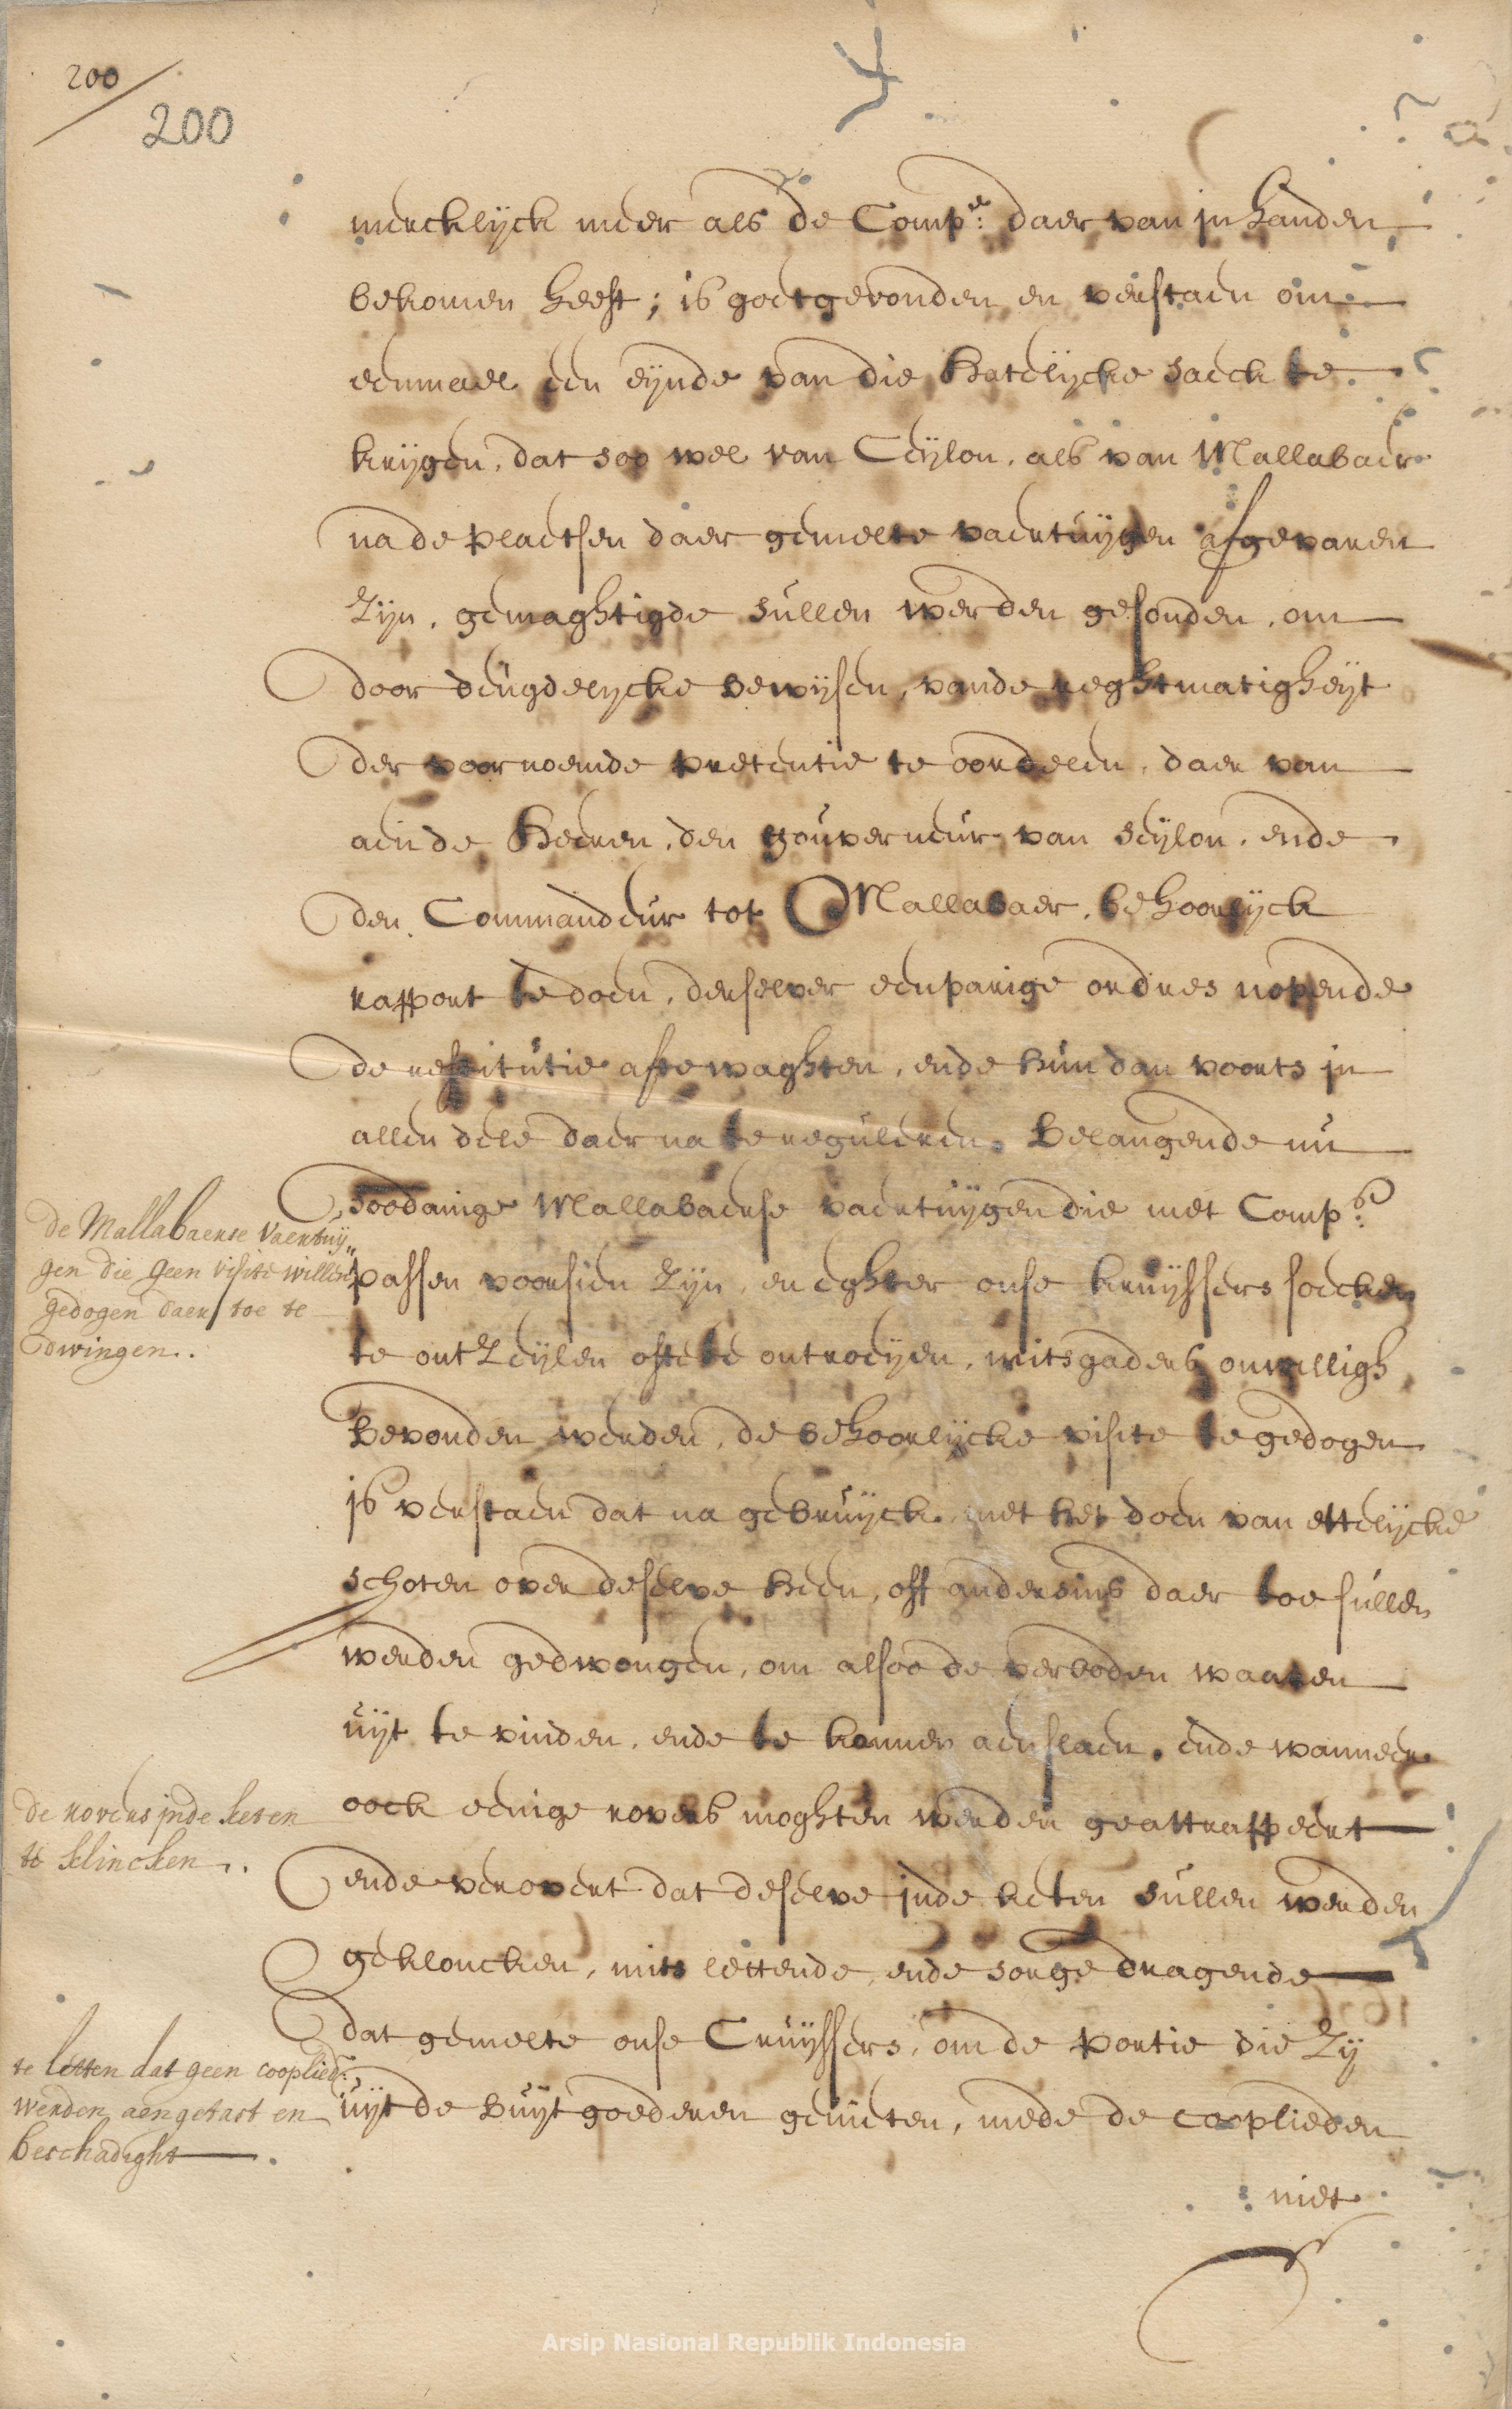 200
200
mercklyck meer als de Compe: daer van in handen
bekomen heeft; is goetgevonden en verstaen om
eenmael een eynde van die hatelycke saeck te
krygen, dat soo wel van Ceylon, als van Mallabaer
na de plaetsen daer gemelte vaertuygen afgevaren
zyn, gemaghtigde sullen werden gesonden, om
door deugdelycke bewysen, vande reghtmatigheyt
der voornoemde pretentie te oordeelen, daer van
aen de heeren, den gouverneur van Ceylon, ende
den Commandeur tot Mallabaer, behoorlyck
rapport te doen, derselver eenparige ordres nopende
de restitutie afte waghten, ende hun dan voorts in
allen dele daer na te reguleren. Belangende nu
soodanige Mallabaerse vaertuygen die met Comps:
passen voorsien zyn, en eghter onse kruyssers soecken
te ontzeylen ofte te ontroeyen, mitsgaders onwilligh
bevonden werden, de behoorlycke visite te gedogen
is verstaen dat na gebruyck, met het doen van ettelycke
schoten over deselve heen, off andersins daer toe sullen
werden gedwongen, om alsoo de verboden waaren
uyt te vinden, ende te konnen aenslaen. ende wanneer
oock eenige rovers moghten werden geattrappeert
ende verovert dat deselve inde keten sullen werden
gekloncken, mits lettende, ende sorge dragende
dat gemelte onse Cruyssers, om de portie die zy
uyt de buytgoederen genieten, mede de cooplieden
niet
de Mallabaerse vaertuy„
gen die geen visite willen
gedogen daer toe te
dwingen..
de rovers inde keten
te klincken..
te letten dat geen cooplied:
werden aengetast en
beschadight.
Arsip Nasional Republik Indonesia